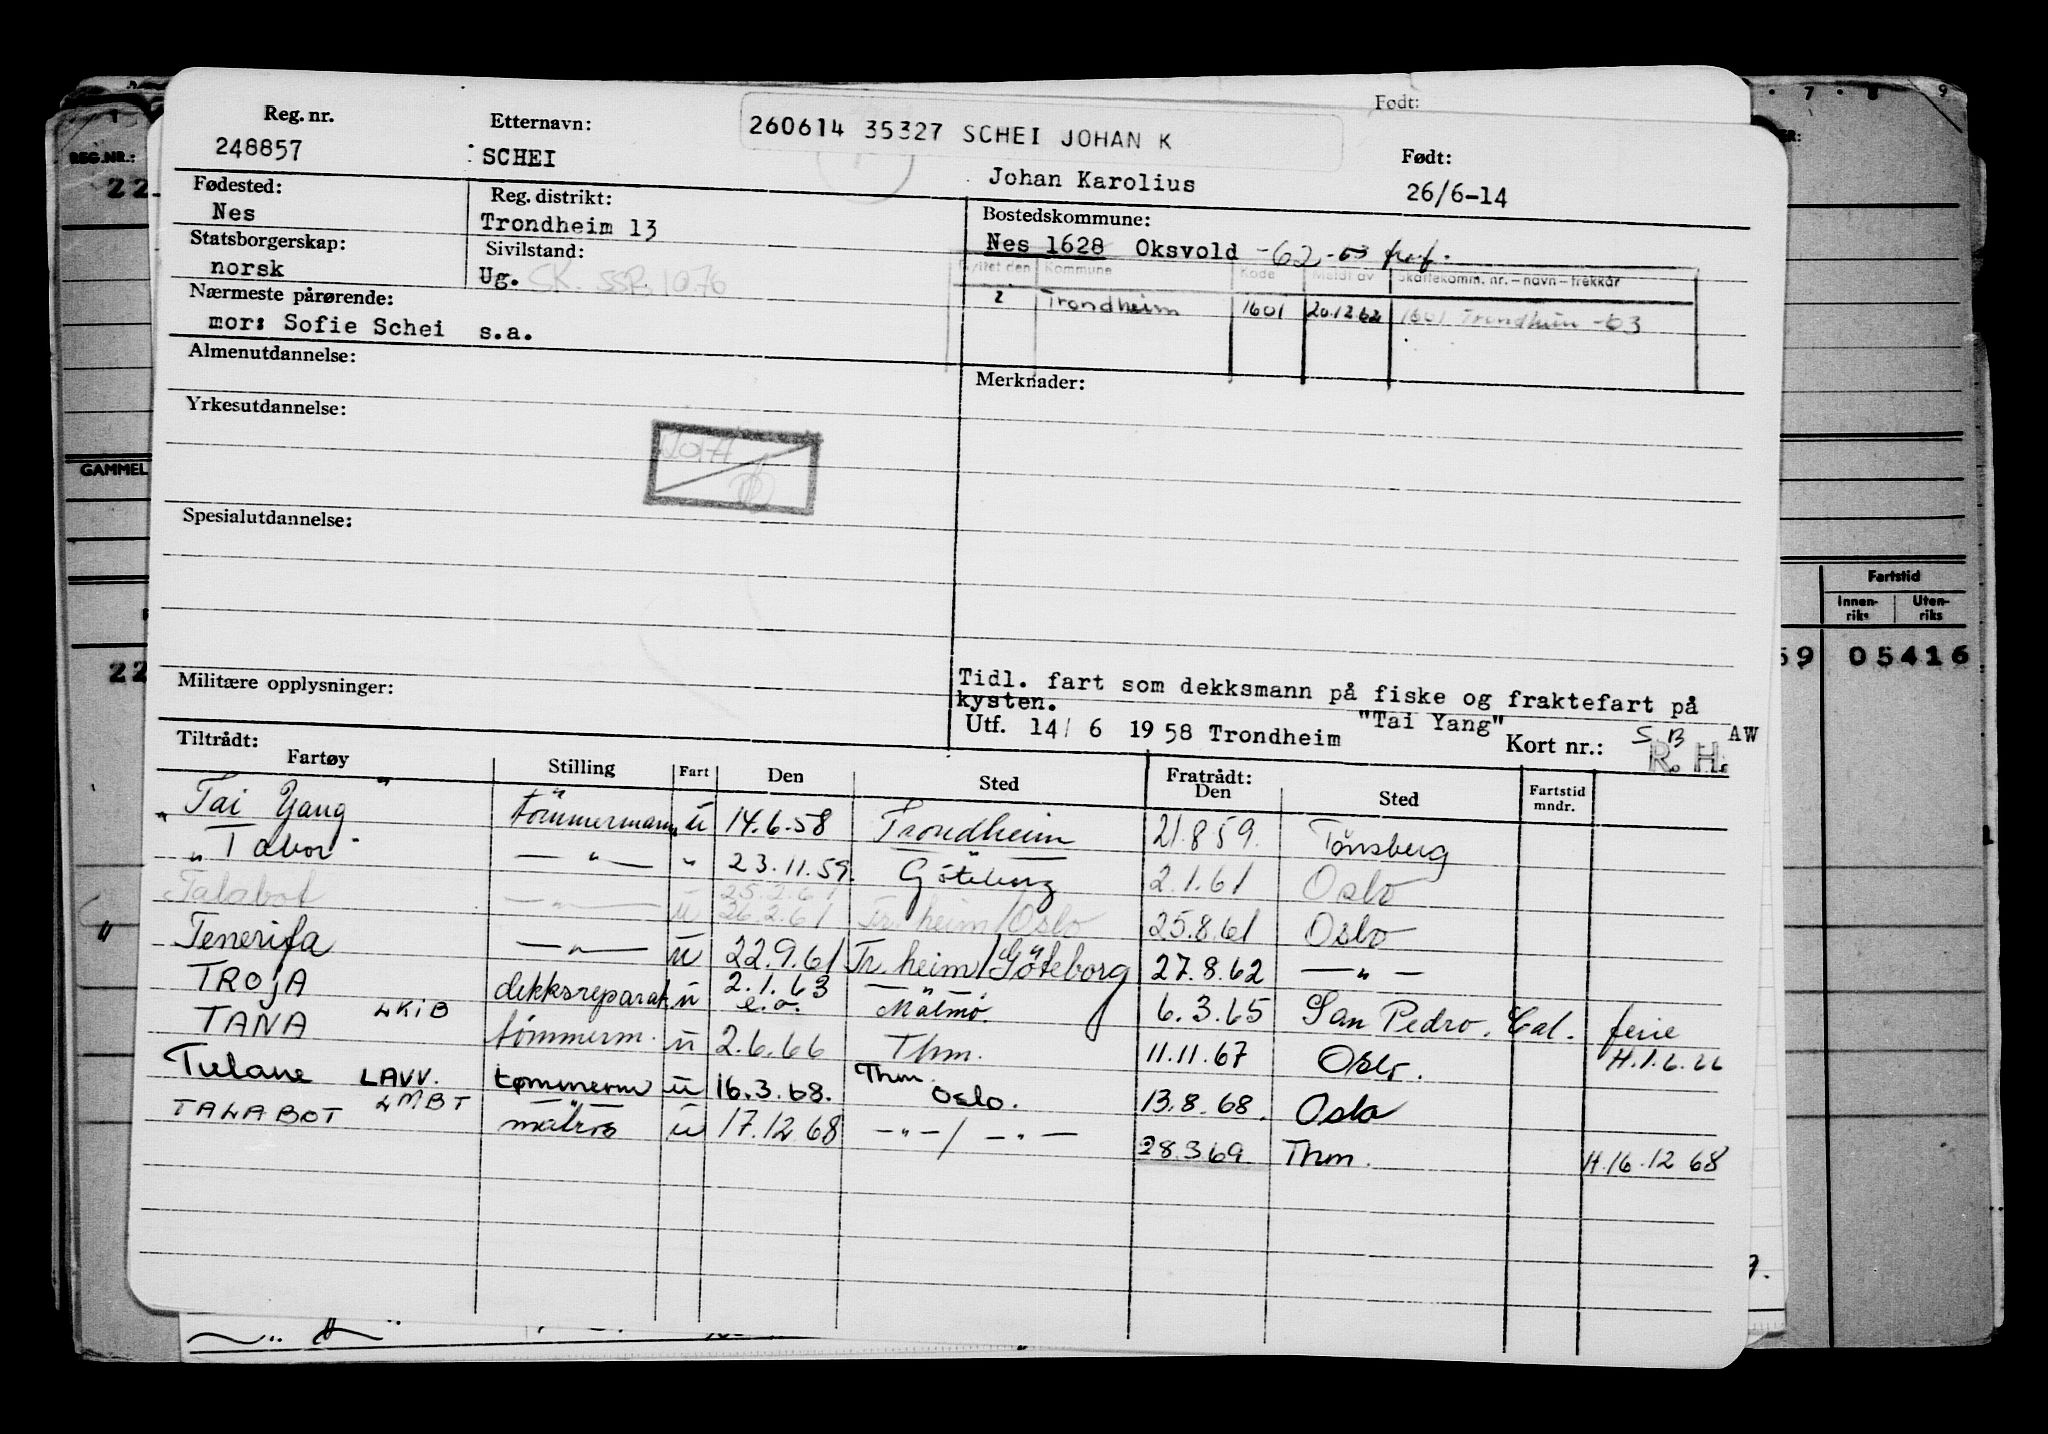 Født:
Reg. nr. Etternavn: 260614 35327 SCHEI JOHAN K
248857 SCHEI Johan Karolius Født: 26/6-14
Fødested: Nes Reg. distrikt: Trondheim 13 Bostedskommune: Nes 1628 Oksvold -62 -63
Statsborgerskap: norsk Sivilstand: Ug. SK. SSR. 10.76
Flyttet den Kommune Kode Meldt av Skattekomm. nr. – navn – trekkår
2 Trondheim 1601 20.12.62 1601 Trondheim -63
Nærmeste pårørende:
mor: Sofie Schei s.a.
Almenutdannelse: Merknader:
Yrkesutdannelse:
Spesialutdannelse:
Militære opplysninger:
Tidl. fart som dekksmann på fiske og fraktefart på
kysten.
Utf. 14/ 6 1958 Trondheim "Tai Yang" Kort nr.: S B AW
R. H.
Tiltrådt: Fartøy Stilling Fart Den Sted Fratrådt: Den Sted Fartstid mndr.
" Tai Yang " tömmermann u 14.6.58 Trondheim 21.8.59. Tönsberg
" Tabor — " — " 23.11.59. Göteborg 2.1.61 Oslo
Talabot — " — u 25.2.61 26.2.61 Tr.heim/Oslo 25.8.61 Oslo
" Tenerifa — " — u 22.9.61 Tr.heim/Göteborg 27.8.62 — " —
TROJA dekksreparat. u 2.1.63 e.o. — Malmö. 6.3.65 San Pedro. Cal. ferie
TANA LKIB tömmerm. u 2.6.66 Thm. 11.11.67 Oslo. H.1.6.66
Tulane LAVV. tømmerm u 16.3.68. Thm. Oslo. 13.8.68. Oslo
TALABOT LMBT matros u 17.12 68 — " — / — " — 28.3 69 Thm. H.16.12 68
REG.NR.:
22
GAMMEL
22
7 8 9
Fartstid
Innenriks Utenriks
59 05416